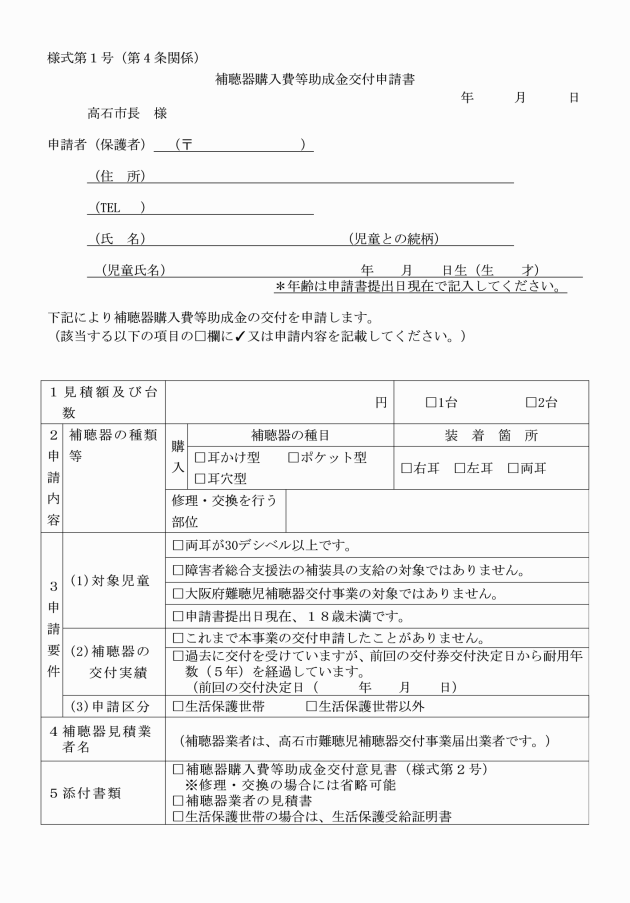 様式第１号（第４条関係）
補聴器購入費等助成金交付申請書
年　　月　　日
高石市長　様
申請者（保護者）　（〒　　　　　　　　）
（住　所）
（TEL　）
（氏　名）　　　　　　　　　　　　　　　（児童との続柄）
（児童氏名）　　　　　　　　　　　　　　　年　　月　　日生（生　　才）
＊年齢は申請書提出日現在で記入してください。
下記により補聴器購入費等助成金の交付を申請します。
（該当する以下の項目の□欄に✓又は申請内容を記載してください。）
１見積額及び台数　　円　　□1台　　□2台
２申請内容
補聴器の種類等
購入
補聴器の種目　　装　着　箇　所
□耳かけ型　　□ポケット型
□耳穴型
□右耳　□左耳　□両耳
修理・交換を行う部位
３申請要件
(1)対象児童
□両耳が30デシベル以上です。
□障害者総合支援法の補装具の支給の対象ではありません。
□大阪府難聴児補聴器交付事業の対象ではありません。
□申請書提出日現在、１８歳未満です。
(2)補聴器の
交付実績
□これまで本事業の交付申請したことがありません。
□過去に交付を受けていますが、前回の交付券交付決定日から耐用年
数（５年）を経過しています。
（前回の交付決定日（　　　年　　月　　日）
(3)申請区分　□生活保護世帯　　　□生活保護世帯以外
４補聴器見積業
者名
（補聴器業者は、高石市難聴児補聴器交付事業届出業者です。）
５添付書類
□補聴器購入費等助成金交付意見書（様式第２号）
※修理・交換の場合には省略可能
□補聴器業者の見積書
□生活保護世帯の場合は、生活保護受給証明書